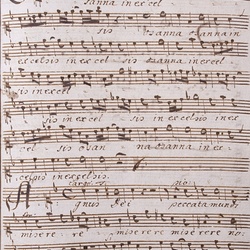 sanna in excel
sis osanna osanna in
excelsis in excel sis osanna in excel
sis in excel
sis in excelsis in ex
cel sis osan na osanna in ex
celsis in excelsis.
Agnus Dei peccata mundi
misere re miserere miserere no